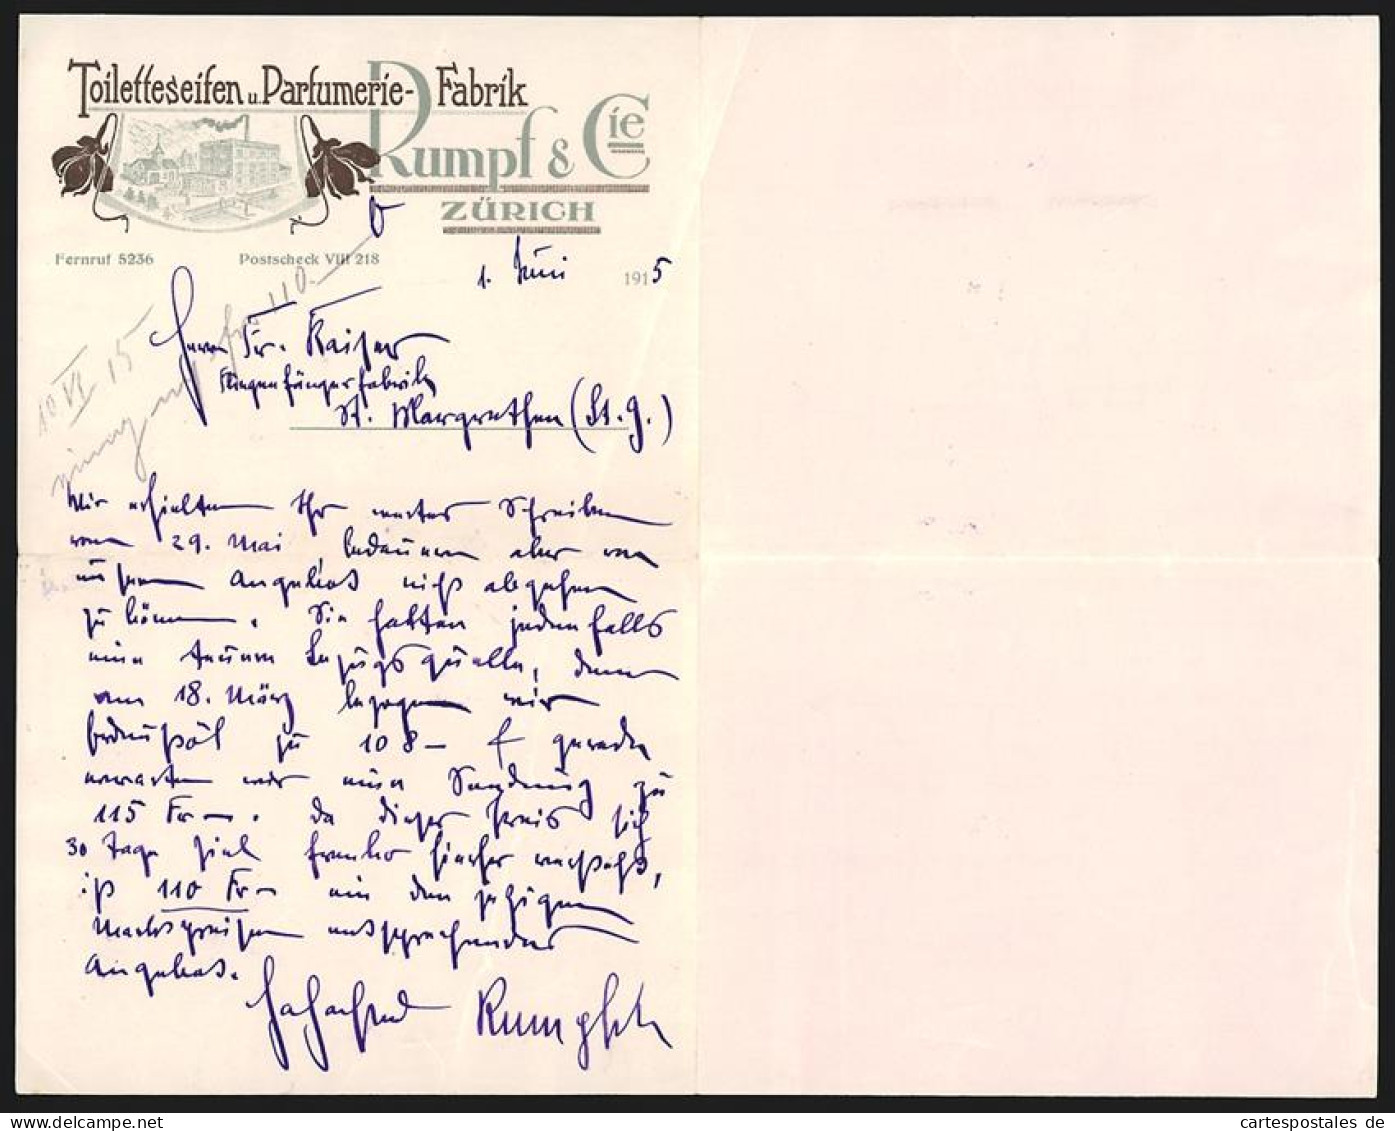 Toiletteseifen u. Parfumerie-Fabrik
Rumpf & Cie
ZÜRICH
Fernruf 5236 Postscheck VIII 218
1. Juni 1915
10 VI 15
110.—
Herrn Fr. Kaiser
Fliegenfängerfabrik
St. Margrethen (St. G.)
Wir erhielten Ihr wertes Schreiben
vom 29. Mai, bedauern aber von
unserem Angebot nicht abgehen
zu können. Sie hatten jedenfalls
eine teuere Bezugsquelle, denn
am 18. März bezogen wir
zu 108 — gerade
erwarten wir eine Sendung zu
115 Fr —. Da dieser Preis sich
30 Tage Ziel franko hierher versteht,
ist 110 Fr — ein den jetzigen
Marktpreisen entsprechendes
Angebot.
Hochachtend Rumpf & Cie
cartespostales de